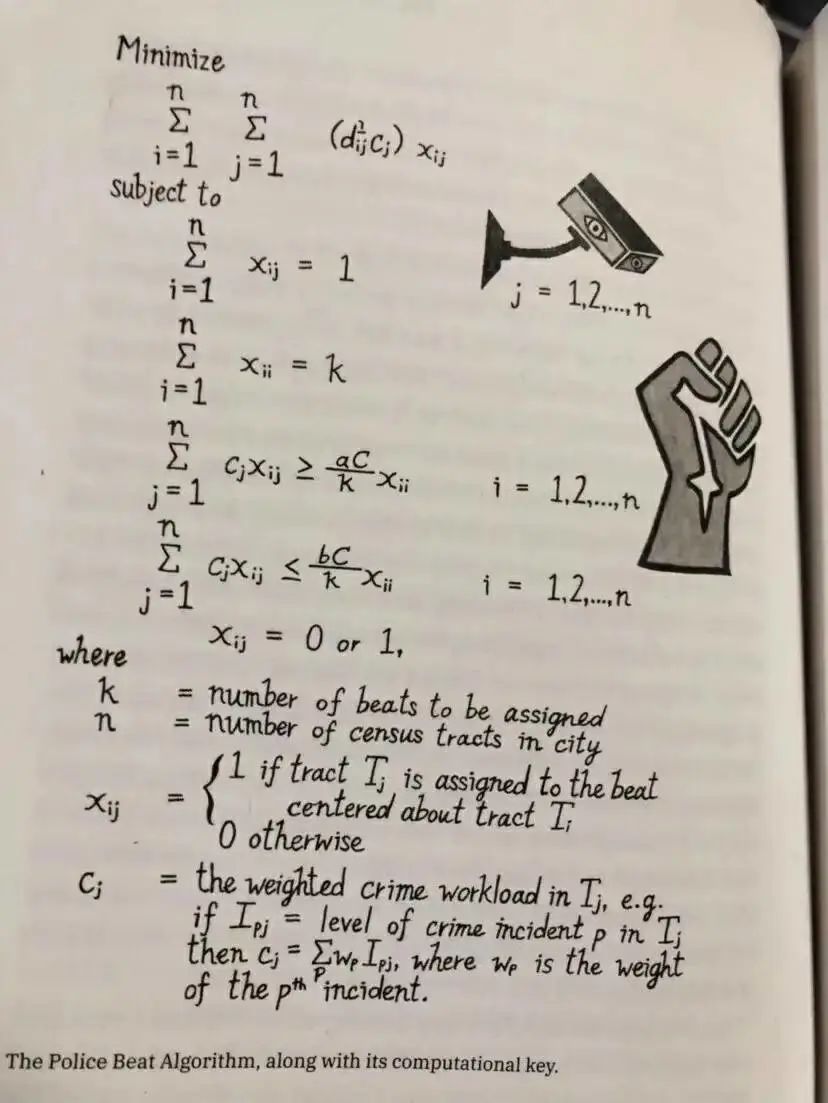 Minimize
n n
Σ Σ (d²ijcj) xij
i=1 j=1
subject to
n
Σ xij = 1
i=1 j = 1,2,...,n
n
Σ xii = k
i=1
n
Σ cjxij ≥ aC/k xii i = 1,2,...,n
j=1
n
Σ cjxij ≤ bC/k xii i = 1,2,...,n
j=1
xij = 0 or 1,
where
k = number of beats to be assigned
n = number of census tracts in city
xij = { 1 if tract Tj is assigned to the beat
centered about tract Ti
0 otherwise
cj = the weighted crime workload in Tj, e.g.
if Ipj = level of crime incident p in Tj
then cj = ΣwpIpj, where wp is the weight
p
of the pth incident.
The Police Beat Algorithm, along with its computational key.